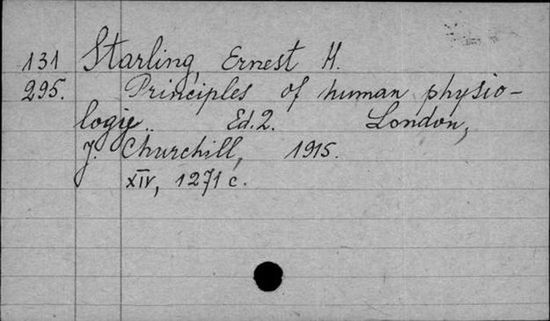 131 Starling Ernest H.
295. Principles of human physio-
logie. Ed. 2. London,
J. Churchill, 1915.
XIV, 1271 c.